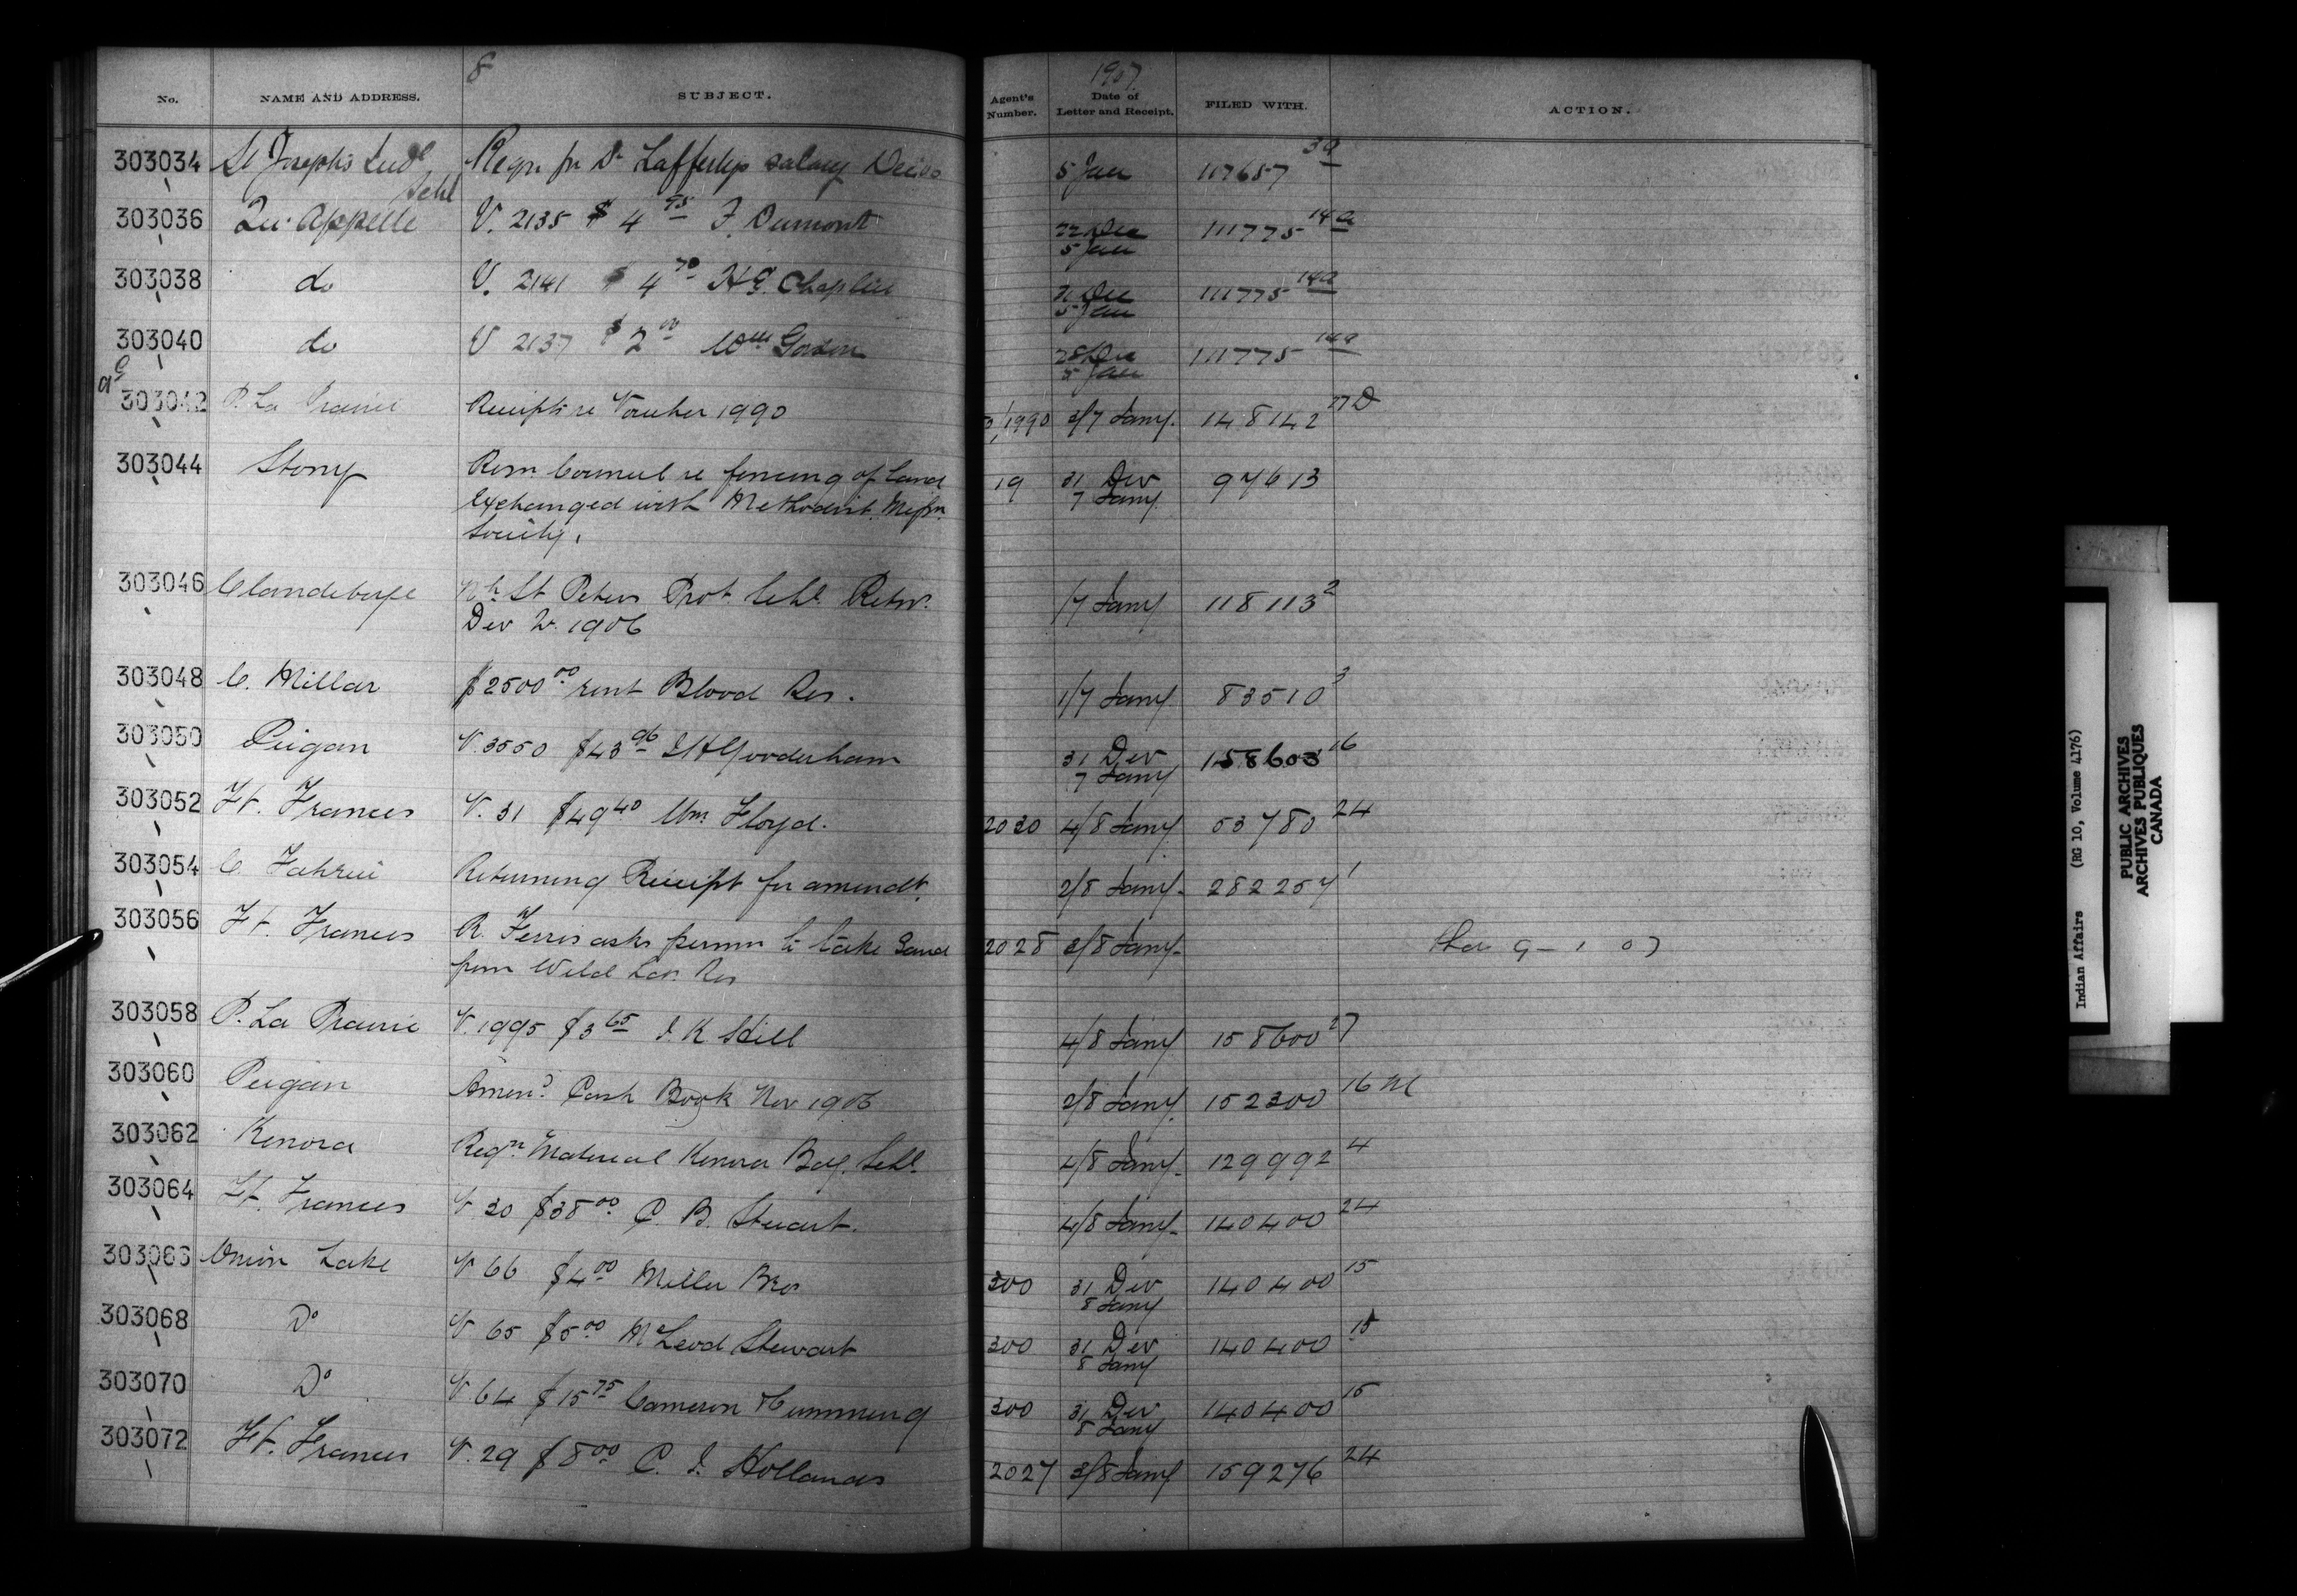 8
1907
No. NAME AND ADDRESS. SUBJECT. Agent's Number. Date of Letter and Receipt. FILED WITH. ACTION.
303034 St Josephs Indl Schl Reqn for Dr Laffertys salary 5 Jan 117657 3a
303036 Qu'Appelle V. 2135 $4 95 F. Dumont 22 Dec 5 Jan 111775 14a
303038 do V. 2141 $4 70 H.G. Chaplin 31 Dec 5 Jan 111775 14a
303040 do V 2137 $2 00 Wm 28 Dec 5 Jan 111775 14a
303042 P. La Prairie Receipts re Voucher 1990 1990 3/7 Jany. 148142 27D
303044 Stony Resn Council re fencing of land 19 31 Dec 7 Jany 97613
exchanged with Methodist Missn.
Society.
303046 Clandeboye Nth St Peters Prot. Schl. Retn. /7 Jany 118113 2
Dec 1906
303048 C. Millar $2500 00 rent Blood Res. 1/7 Jany 83510 3
303050 Peigan V. 3550 $43 96 J H Gooderham 31 Dec 7 Jany 158603 16
303052 Ft. Frances V. 31 $49 40 Wm Floyd. 2030 4/8 Jany 53780 24
303054 C. Returning Receipt for amendt. 2/8 Jany. 282257 1
303056 Ft. Frances R. Ferris asks permn to take Sand 2028 3/8 Jany. 9 - 1 07
from Wild Res
303058 P. La Prairie V. 1995 $3 65 J. K Hill 4/8 Jany 158600 27
303060 Peigan Amend Cash Book Nov 1906 2/8 Jany. 152300 16 M
303062 Kenora Reqn Material Kenora Bdg. Schl. 4/8 Jany. 129992 4
303064 Ft. Frances V 30 $38 00 C. B. Stewart. 4/8 Jany. 140400 24
303066 Onion Lake V 66 $4 00 Miller Bros 300 31 Dec 8 Jany 140400 15
303068 Do V 65 $5 00 McLeod Stewart 300 31 Dec 8 Jany 140400 15
303070 Do V 64 $15 75 Cameron & Cumming 300 31 Dec 8 Jany 140400 15
303072 Ft. Frances V. 29 $8 00 C. J. Hollands 2027 3/8 Jany 159276 24
Indian Affairs (RG 10, Volume 4176)
PUBLIC ARCHIVES
ARCHIVES PUBLIQUES
CANADA